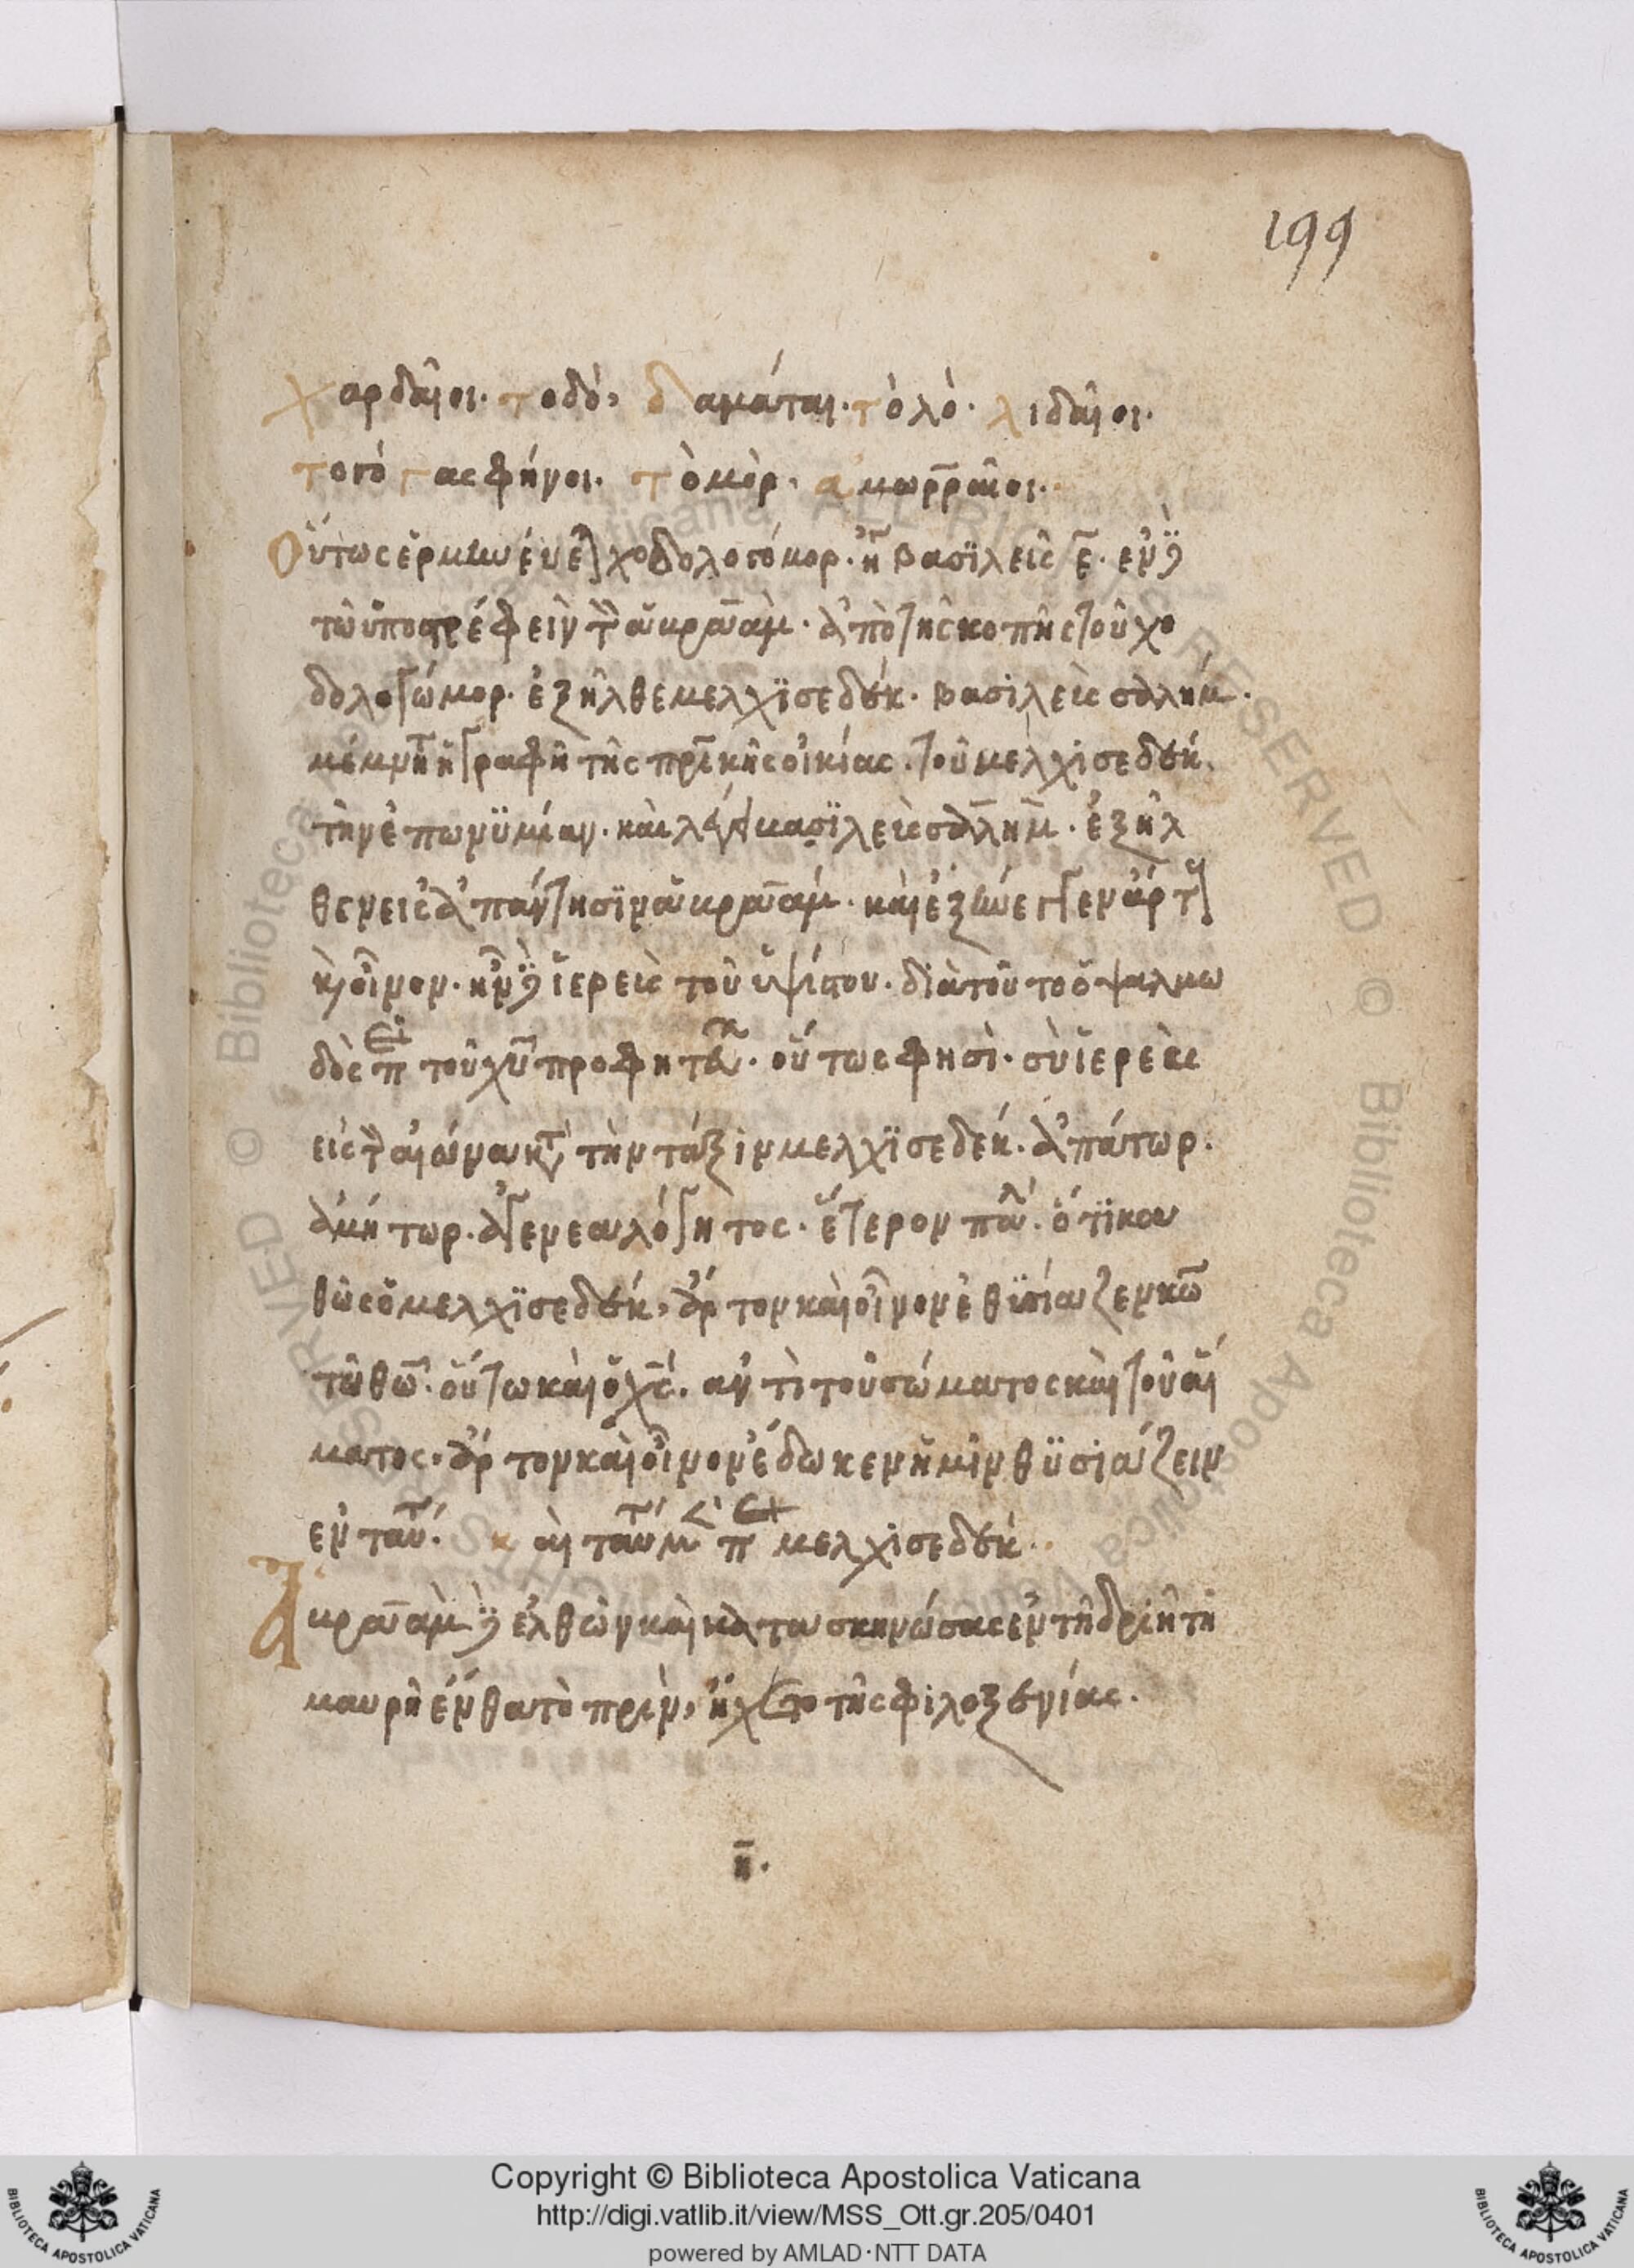 199
χαρδαῖοι. το δὸ, δαμάται. τὸ λὸ. λιδαῖοι.
το γό γασφήνοι. τὸ μὸρ, ἀμωρραῖοι.
Οὕτως ἑρμηνέυε χοδολογόμορ. βασϊλεῖς ε̄.
τῶ ὑποστρέφειν ἀπὸ τῆς κοπῆς τοῦ χο
δολογώμορ. ἐξῆλθε μελχϊσεδέκ. βασιλεὺς σαλήμ.
ἡ γραφὴ τῆς οἰκίας. τοῦ μελχισεδέκ.
τὴν ἐπωνϋμίαν. καὶ βασϊλεὺς σαλὴμ. ἐξῆλ
θεν εἰς ἀπάντησϊν ἀβραάμ. καὶ
οἶνον. ἱερεὺς τοῦ ὑψίστου. διὰ τοῦτο ὁ ψαλμω
δὸς π τοῦ χυ οὕτως φησὶ. σὺ ἱερεὺς
εἰς αἰώνα τὴν τάξιν μελχϊσεδέκ. ἀπάτωρ.
ἀμήτωρ. ἀγενεαλόγητος. ἕτερον ὅτϊ κα
θὼς ὁ μελχϊσεδέκ, ἄρτον καὶ οἶνον ἐθϋσίαζεν
τῶ θω. οὕτω καὶ ὁ χς. αντὶ τοῦ σώματος καὶ τοῦ αἵ
ματος. ἄρτον καὶ οἶνον ἔδωκεν ἡμῖν θϋσιάζειν
εν ταυτ. καὶ ταῦτ μ π μελχισεδέκ.
Αβραὰμ ἐλθὼν καὶ κατασκηνώσας ἐν τῆ δρυῒ τῆ
μαυρῆ ἔνθα τὸ πρὶν, τῆς φιλοξενίας.
η̄.
Copyright © Biblioteca Apostolica Vaticana
http://digi.vatlib.it/view/MSS_Ott.gr.205/0401
powered by AMLAD·NTT DATA
BIBLIOTECA APOSTOLICA VATICANA
BIBLIOTECA APOSTOLICA VATICANA